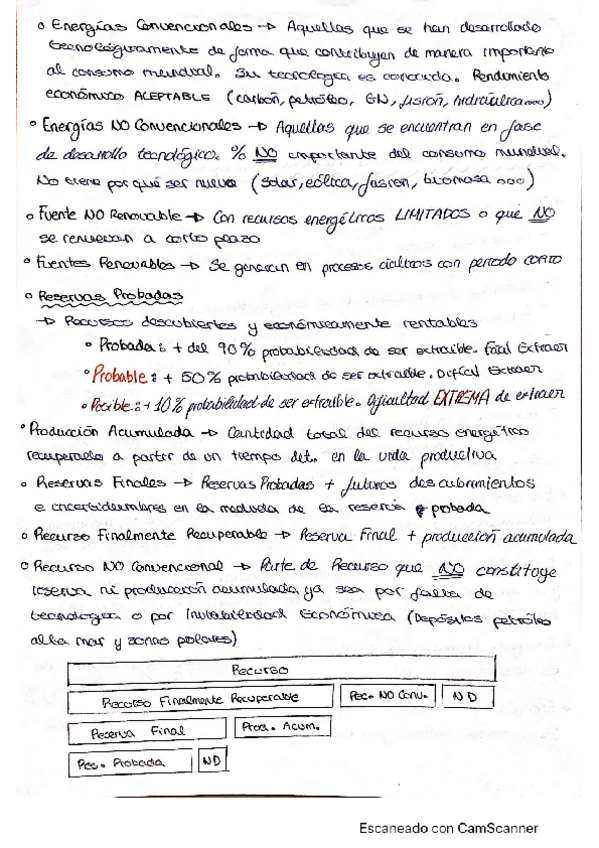 o Energías Convencionales → Aquellas que se han desarrollado
tecnológicamente de forma que contribuyen de manera importante
al consumo mundial. Su tecnología es conocida. Rendimiento
económico ACEPTABLE (carbón, petróleo, GN, fisión, hidráulica...)
o Energías NO Convencionales → Aquellas que se encuentran en fase
de desarrollo tecnológico. % NO importante del consumo mundial.
No tiene por qué ser nueva (solar, eólica, fusion, biomasa ...)
o Fuente NO Renovable → Con recursos energéticos LIMITADOS o que NO
se renuevan a corto plazo
o Fuentes Renovables → Se generan en procesos cíclicos con periodo CORTO
o Reservas Probadas
→ Recursos descubiertos y económicamente rentables
o Probada: + del 90% probabilidad de ser extraible. Fácil Extraer
• Probable: + 50% probabilidad de ser extraible. Difícil Extraer
• Posible: + 10% probabilidad de ser extraible. Dificultad EXTREMA de extraer
o Producción Acumulada → Cantidad total del recurso energético
recuperado a partir de un tiempo det. en la vida productiva
o Reservas Finales → Reservas Probadas + futuros descubrimientos
e incertidumbres en la medida de la reserva probada
o Recurso Finalmente Recuperable → Reserva Final + producción acumulada
o Recurso NO Convencional → Parte de Recurso que NO constituye
reserva ni producción acumulada ya sea por falta de
tecnología o por Inviabilidad Económica (Depósitos petróleo
alta mar y zonas polares)
Recurso
Recurso Finalmente Recuperable Rec. NO Conv. ND
Reserva Final Prod. Acum.
Res. Probada ND
Escaneado con CamScanner